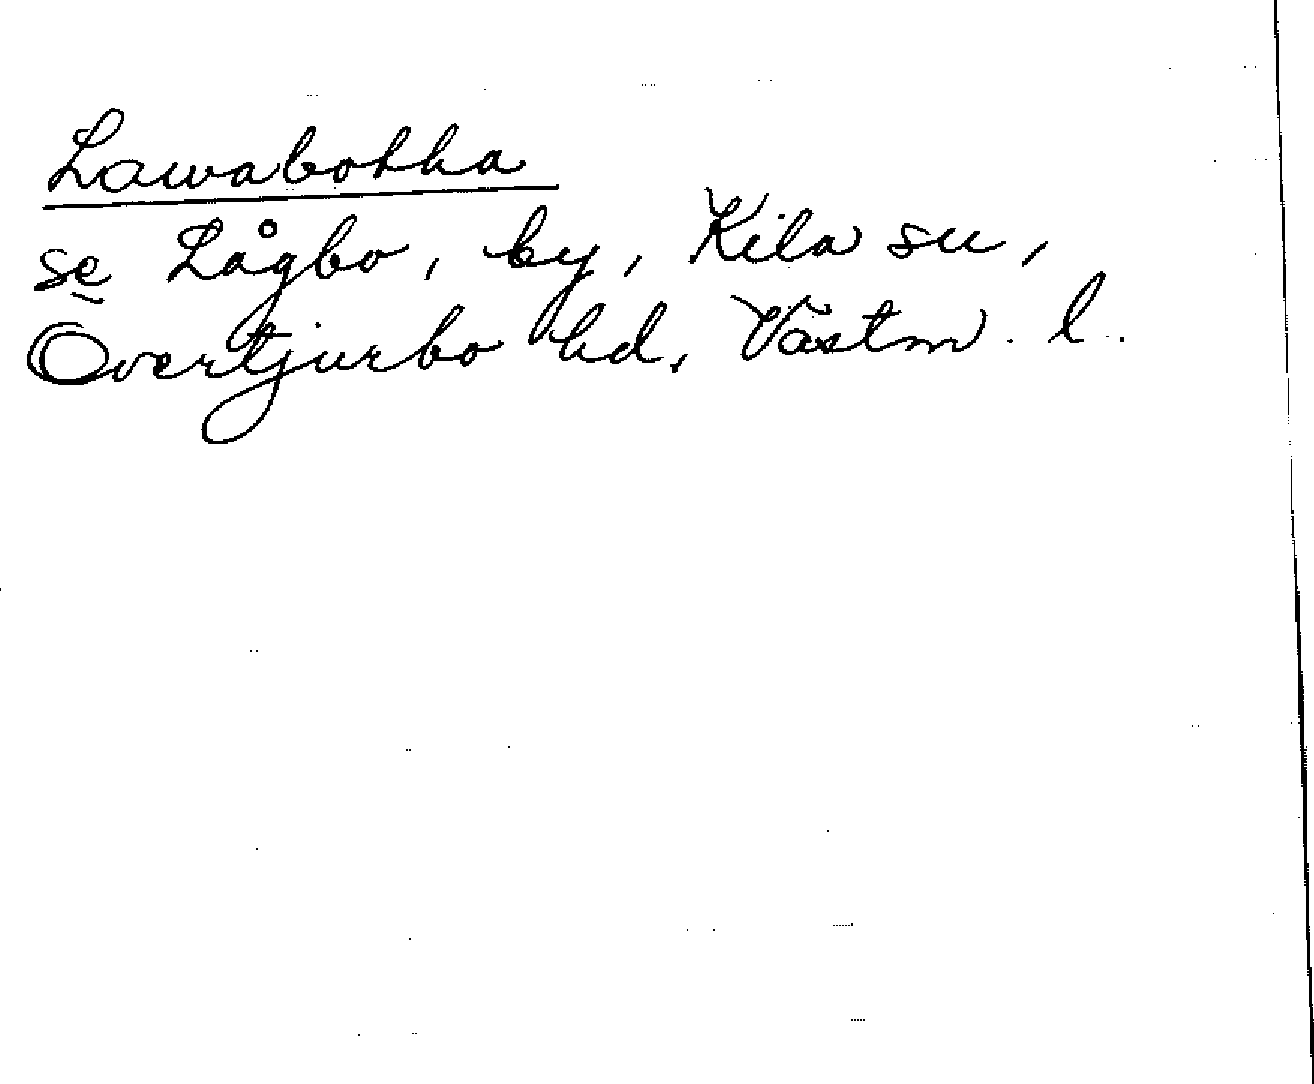 Lawabohha
se Lågbo, by, Kila sn,
Övertjurbo hd, Västm. l.